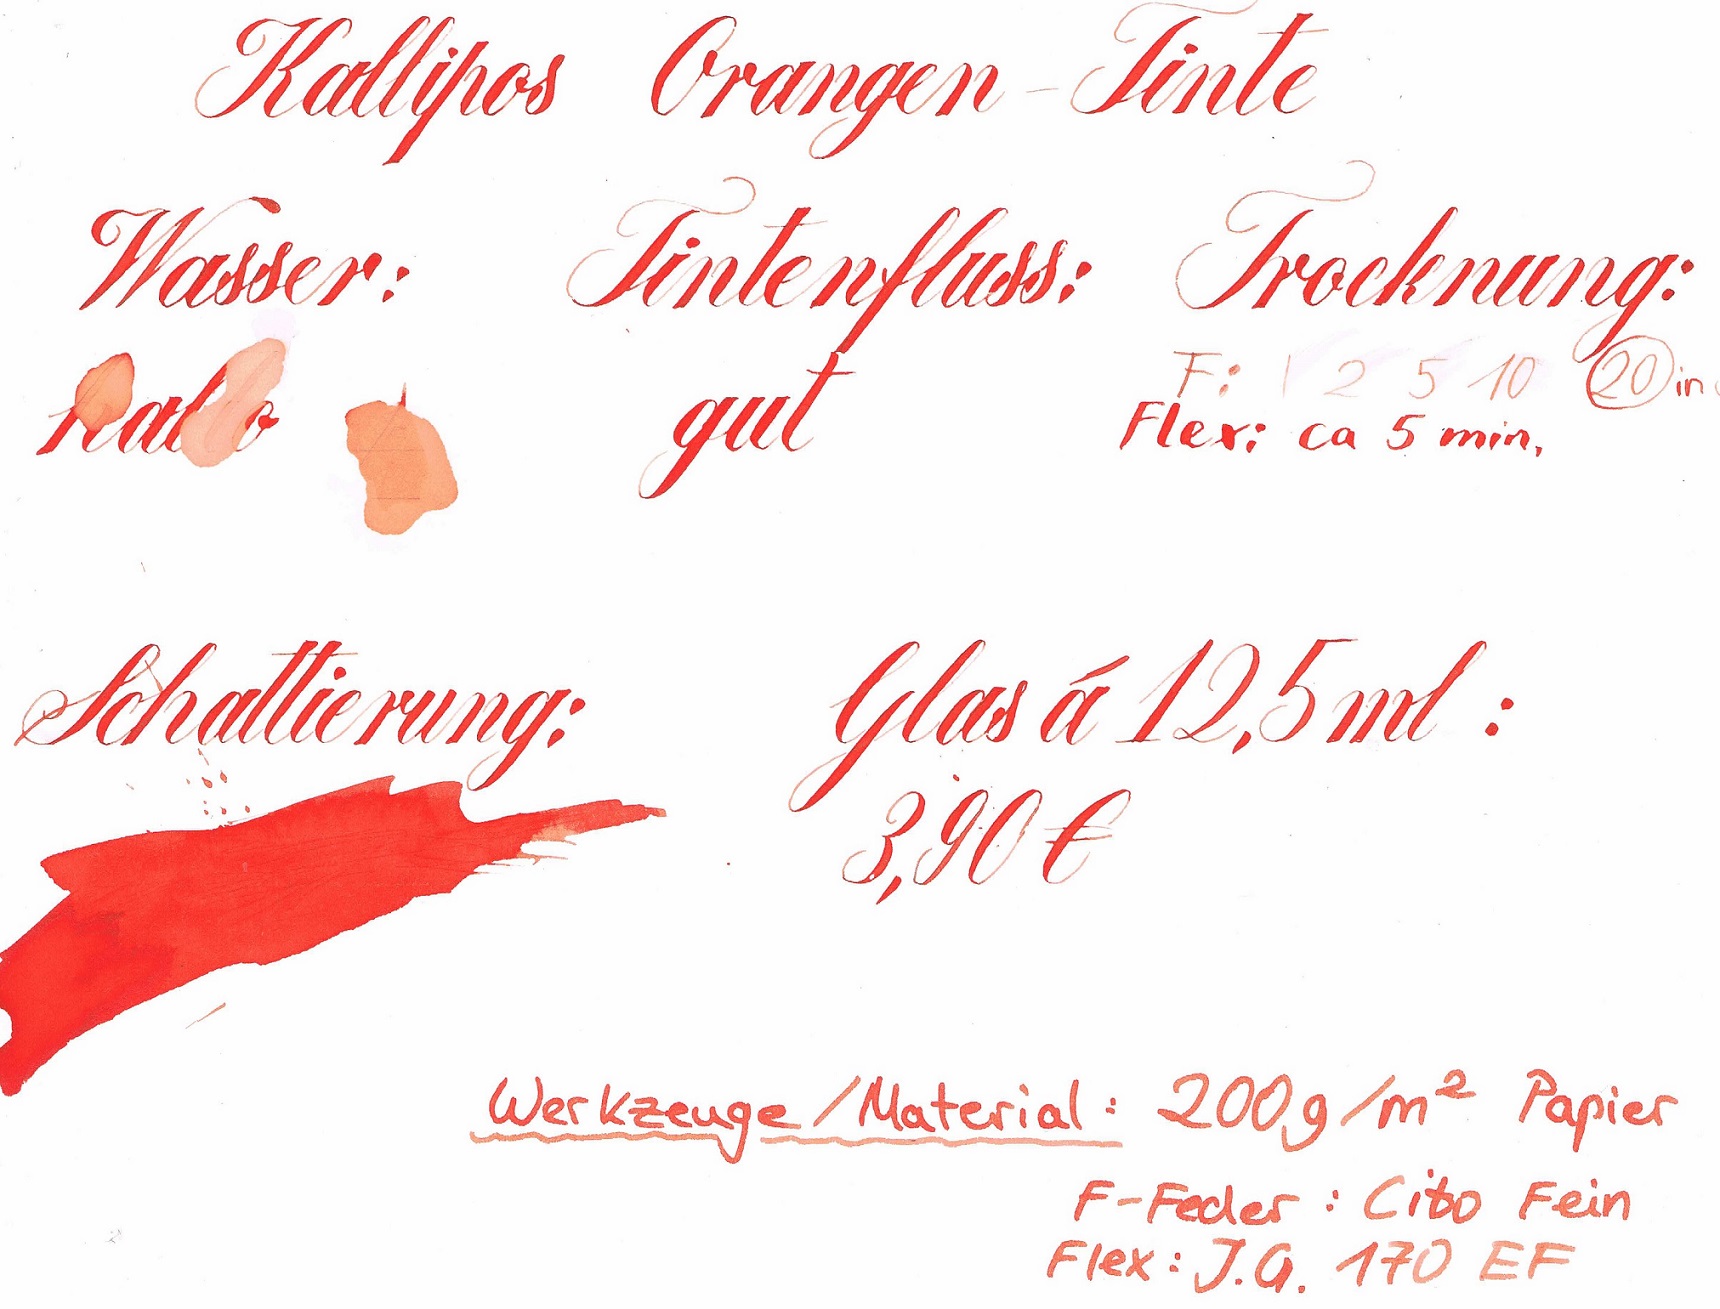 Kallipos Orangen-Tinte
Wasser: Tintenfluss: Trocknung:
gut
F: 1 2 5 10 20 in
Flex: ca 5 min.
Schattierung: Glas á 12,5 ml :
3,90 €
Werkzeuge/Material: 200g/m² Papier
F-Feder : Cito Fein
Flex: J.G. 170 EF